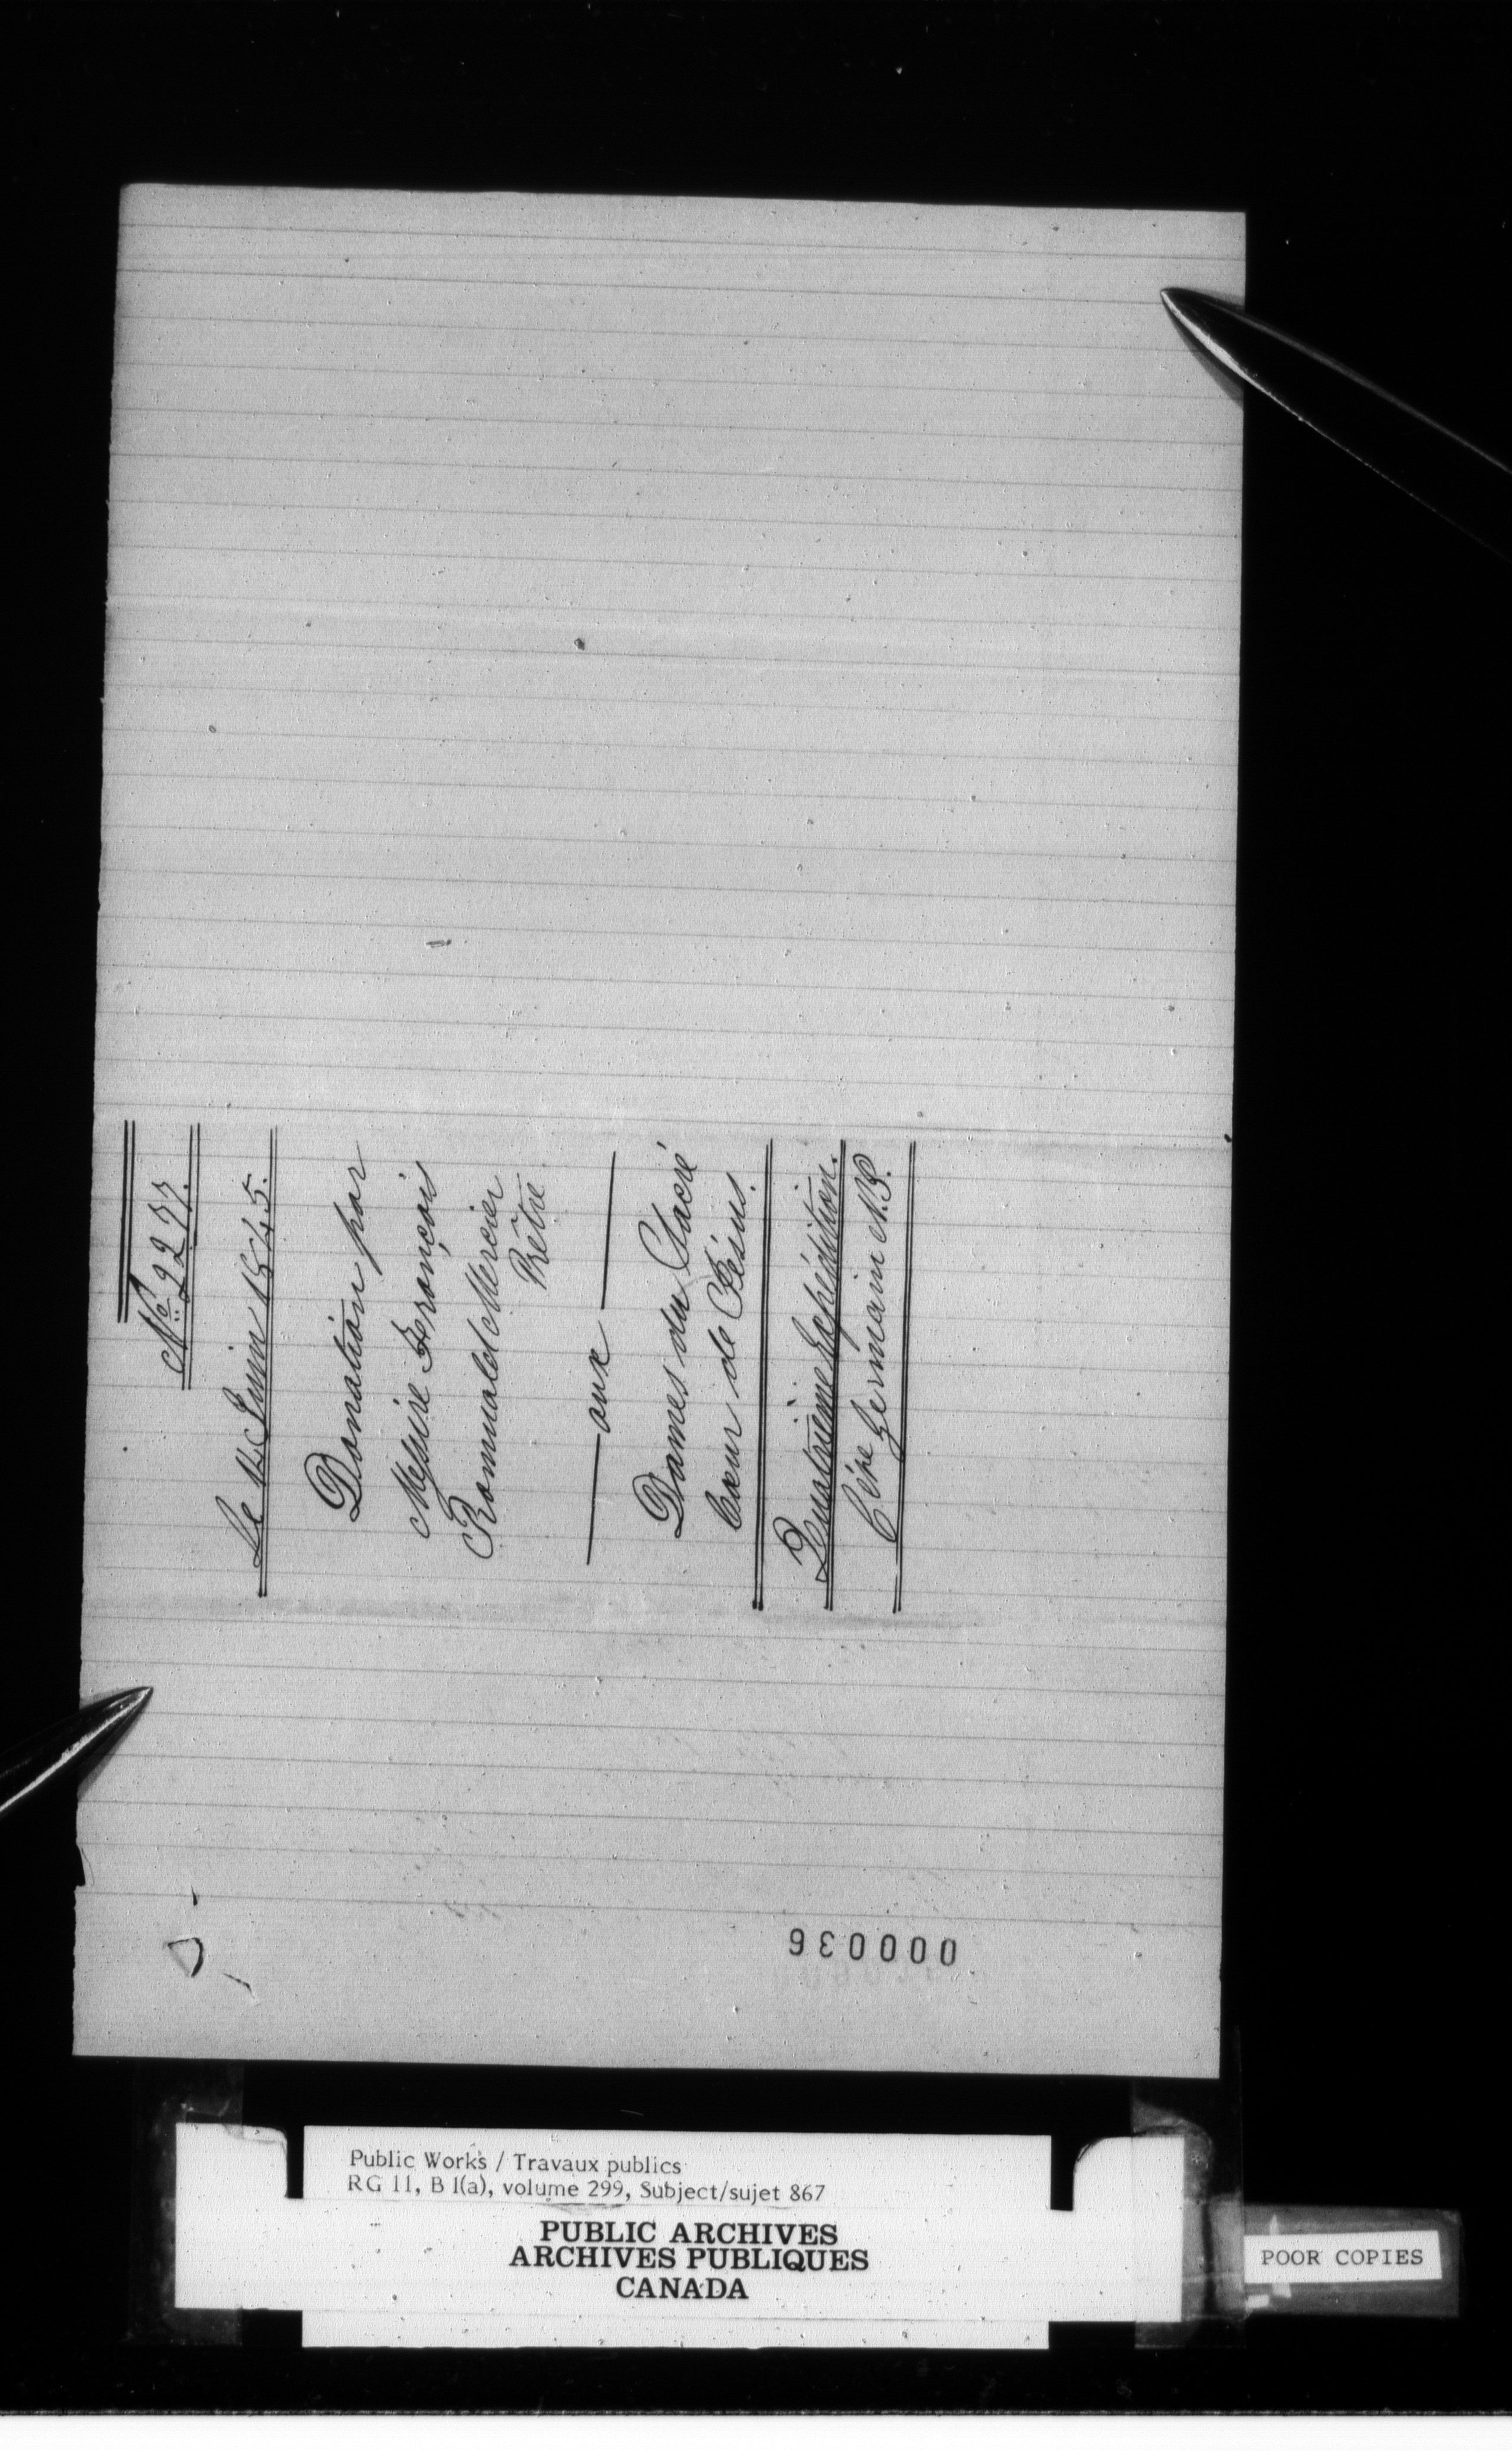 No. 2277.
Le 14 Juin 1845.
Donation par
Messire François
Romuald Mercier
Prêtre
aux
Dames du Sacré
Cœur de Jésus.
Quatrième Expédition.
Césre Germain N.P.
000036
Public Works / Travaux publics
RG 11, B 1(a), volume 299, Subject/sujet 867
PUBLIC ARCHIVES
ARCHIVES PUBLIQUES
CANADA
POOR COPIES